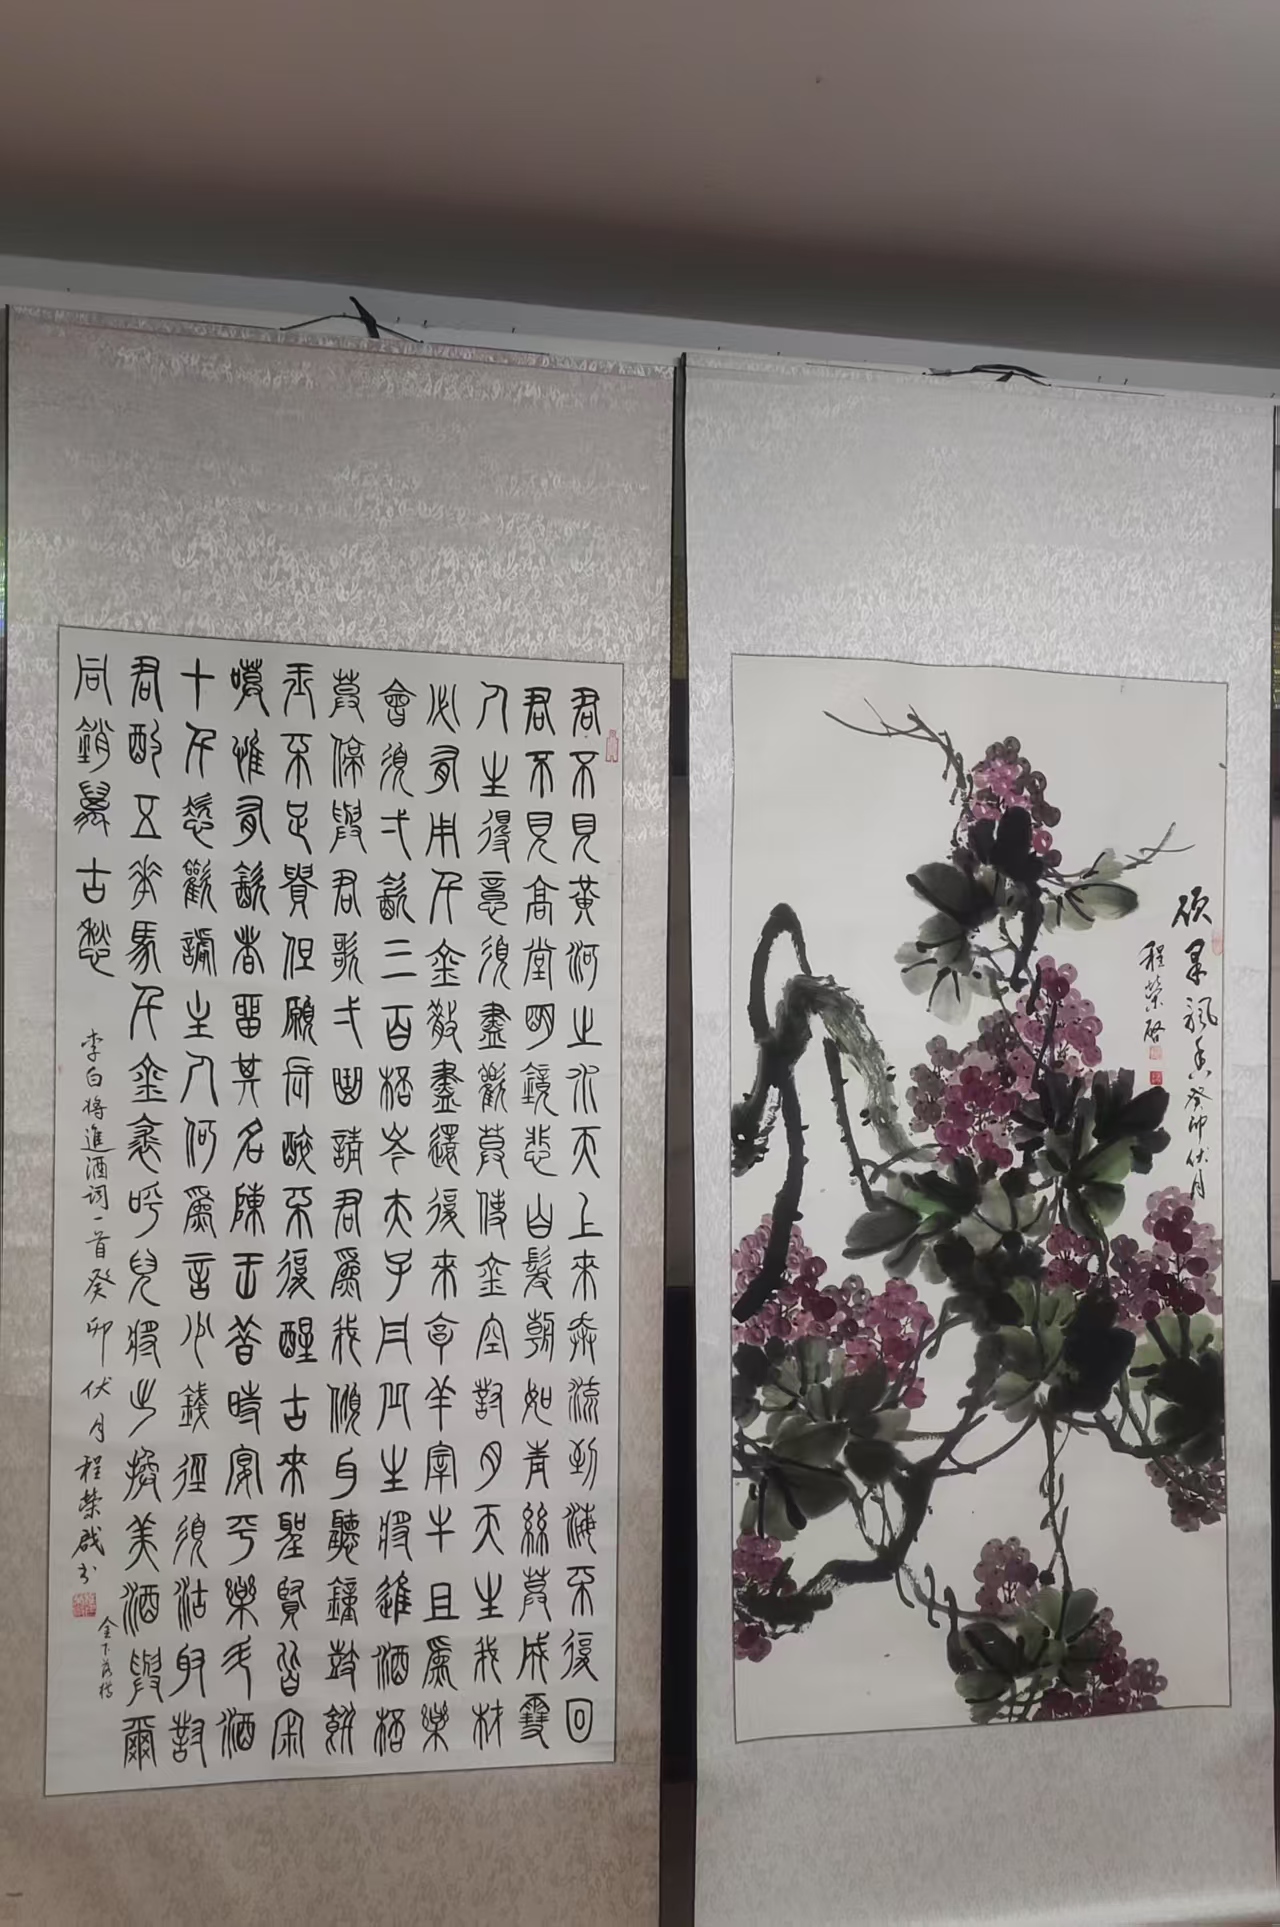 君不見黃河之水天上來奔流到海不復回
君不見高堂明鏡悲白髮朝如青絲暮成雪
人生得意須盡歡莫使金空對月天生我材
必有用千金散盡還復來亨羊宰牛且爲樂
會須弌飲三百杯岑夫子丹丘生將進酒杯
莫停與君歌弌曲請君爲我傾耳聽鐘鼓饌
玉不足貴但願長醉不復醒古來聖賢皆寂
嘆惟有飲者留其名陳王昔時宴平樂斗酒
十千恣歡謔主人何爲言少錢徑須沽取對
君酌五花馬千金裘呼兒將出換美酒與爾
同銷萬古愁
李白將進酒词一首癸卯伏月程榮啟书
金下落樽
碩果飄香癸卯伏月
程榮啓